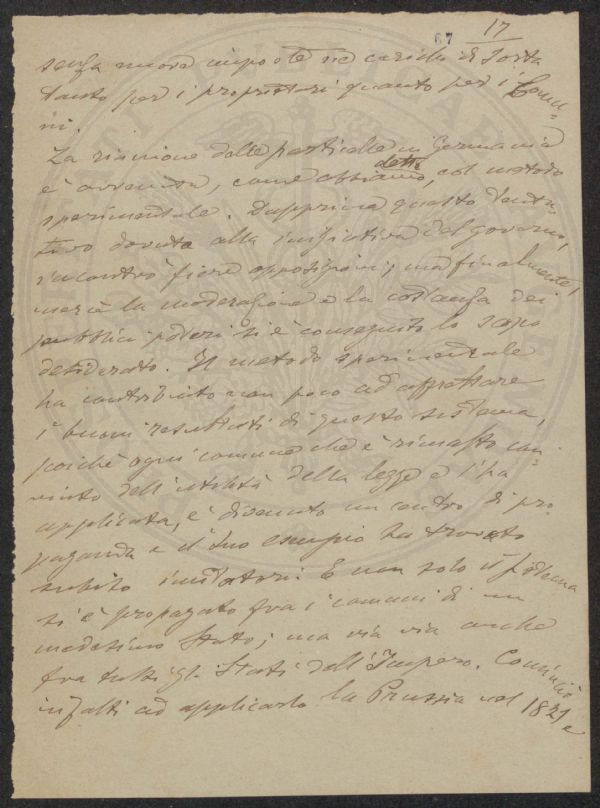 67 17
senza nuove imposte ne carichi di sorta
tanto per i proprietari quanto per i Comu-
ni.
La riunione delle particelle in Germania
è avvenuta, come abbiamo detto, col metodo
sperimentale. Dapprima questo tenta-
tivo dovuto alla iniziativa del governo,
incontrò fiere opposizioni; ma finalmente,
mercè la moderazione e la costanza dei
pubblici poteri si è conseguito lo scopo
desiderato. Il metodo sperimentale
ha contribuito non poco ad affrettare
i buoni resultati di questo sistema,
poichè ogni comune che è rimasto con-
vinto dell'utilità della legge e l'ha
applicata, è divenuto un centro di pro
paganda e il suo esempio ha trovato
subito imitatori. E non solo il sistema
si è propagato fra i comuni di un
medesimo Stato; ma via via anche
fra tutti gli Stati dell'Impero. Cominciò
infatti ad applicarlo la Prussia nel 1821 e